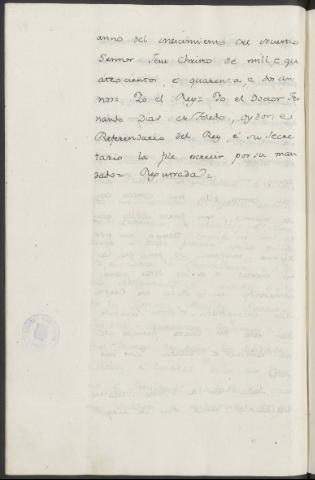 anno del nascimiento del nuestro
Sennor Jesu Christo de mil, e qu
atrocientos, e quarenta, e dos an
nos = Yo el Rey = Yo el Doctor Fe
nando Dias de Toledo, oydor, e
Referendario del Rey, e su Secre
tario la fise escreuir por su man
dado = Registrada =